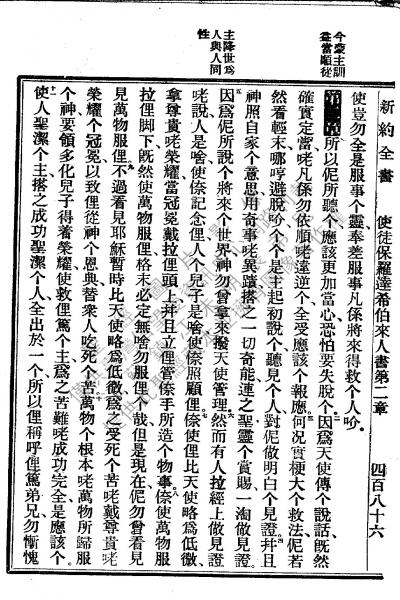 今蒙主訓
益當順從
主降世爲
人與人同
性
新約全書　使徒保羅達希伯來人書第二章　四百八十六
使豈勿全是服事个靈奉差服事凡係將來得救个人吤。
第二章 所以伲所聽个應該更加當心恐怕要失脫个因爲天使傳个說話旣然
確實定當咾凡係勿依順咾違逆个全受應該个報應何况實梗大个救法伲若
然看輕末哪哼避脫吤个个是主起初說个聽見个人對伲做明白个見證幷且
神照自家个意思用奇事咾異蹟搭之一切奇能連之聖靈个賞賜一淘做見證。
因爲伲所說个將來个世界神勿曾拿來撥天使管理然而有人拉經上做見證
咾說人是啥使倷記念俚人个兒子是啥使倷照顧俚倷使俚比天使略爲低微、
拿尊貴咾榮耀當冠冕戴拉俚頭上幷且立俚管倷手所造个物事倷使萬物服
拉俚脚下旣然使萬物服俚格末必定無啥勿服俚个哉但是現在伲勿曾看見
見萬物服俚不過看見耶穌暫時比天使略爲低微爲之受死个苦咾戴尊貴咾
榮耀个冠冕以致俚從神个恩典替衆人吃死个苦萬物个根本咾萬物所歸服
个神要領多化兒子得着榮耀使救俚篤个主爲之苦難咾成功完全是應該个。
使人聖潔个主搭之成功聖潔个人全出於一个所以俚稱呼俚篤弟兄勿慚愧